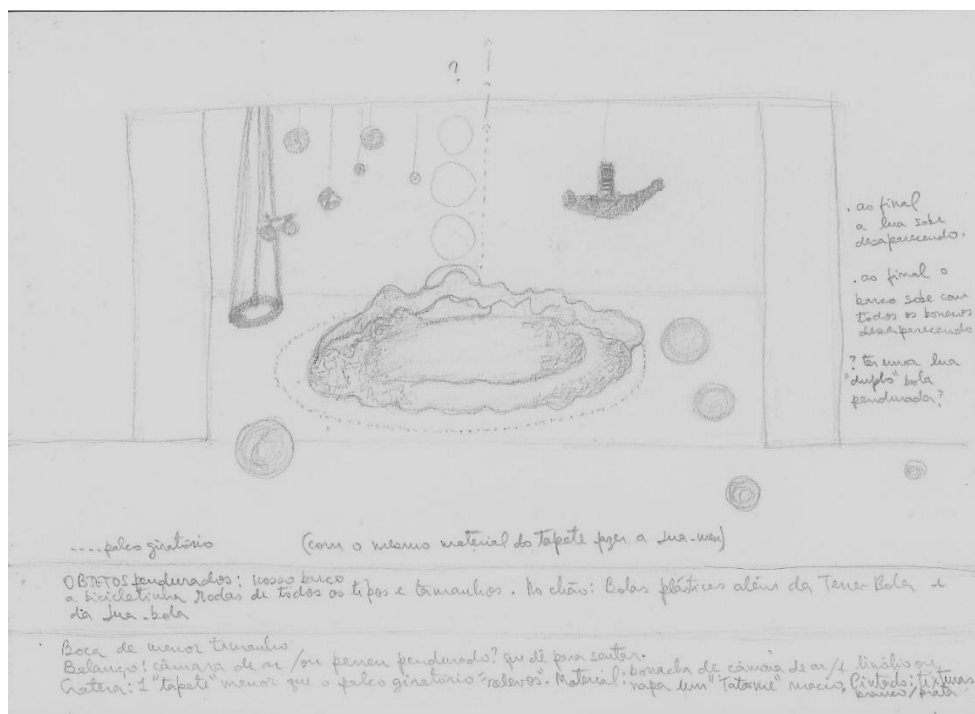 ?
. ao final
a lua sobe
desaparecendo.
. ao final o
barco sobe com
todos os bonecos
desaparecendo
? ter uma lua
"duplo" bola
pendurada?
....palco giratório (com o mesmo material do tapete a Lua-
OBJETOS pendurados: nosso barco
a bicicletinha Rodas de todos os tipos e tamanhos. No chão: Bolas plásticas além da Terra-Bola e
da Lua-bola
Boca de menor tamanho
Balanço: câmara de ar /ou pneu pendurado? que dê para sentar.
Cratera: 1 "tapete" menor que o palco giratório "relevos". Material: borracha de câmara de ar/ linólio ou
"Tatame" macio. Pintado: texturas
branco/prata